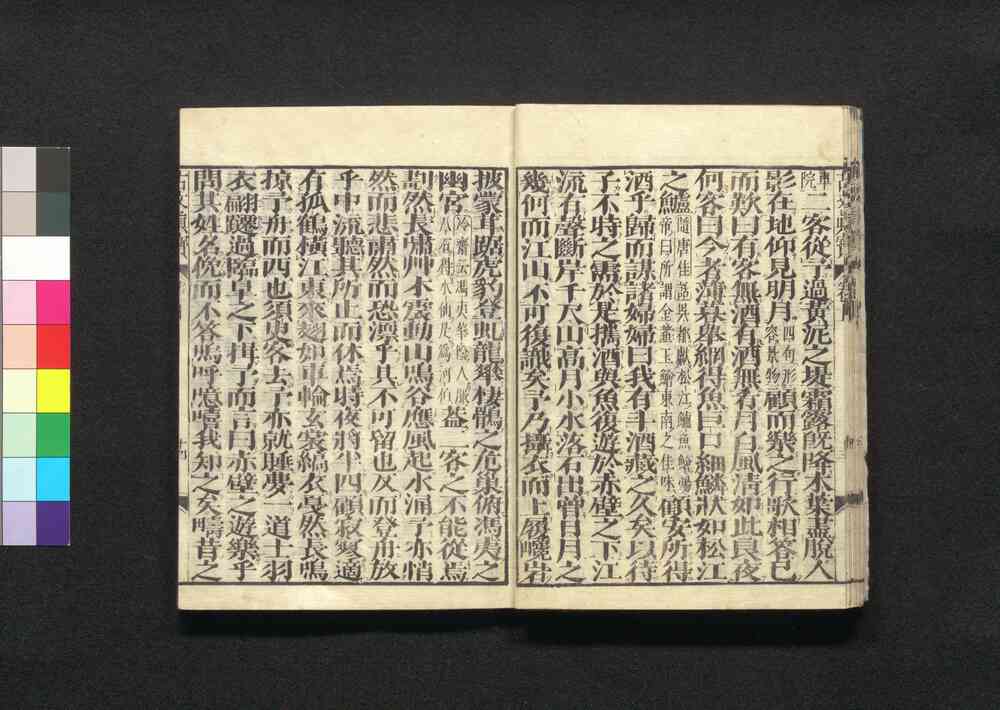 二客從予過黃泥之坂霜露既降木葉盡脫人
影在地仰見明月顧而樂之行歌相答已
而歎曰有客無酒有酒無肴月白風清如此良夜
何客曰今者薄暮舉網得魚巨口細鱗狀如松江
之鱸顧安所得
酒乎歸而謀諸婦婦曰我有斗酒藏之久矣以待
子不時之需於是攜酒與魚復遊於赤壁之下江
流有聲斷岸千尺山高月小水落石出曾日月之
幾何而江山不可復識矣予乃攝衣而上履巉岩
披蒙茸踞虎豹登虬龍攀棲鶻之危巢俯馮夷之
幽宮蓋二客之不能從焉
劃然長嘯艸木震動山鳴谷應風起水涌予亦悄
然而悲肅然而恐凛乎其不可留也反而登舟放
乎中流聽其所止而休焉時夜將半四顧寂寥適
有孤鶴橫江東來翅如車輪玄裳縞衣戛然長鳴
掠予舟而西也須臾客去予亦就睡夢一道士羽
衣翩躚過臨皐之下揖予而言曰赤壁之遊樂乎
問其姓名俛而不答嗚呼噫嘻我知之矣疇昔之